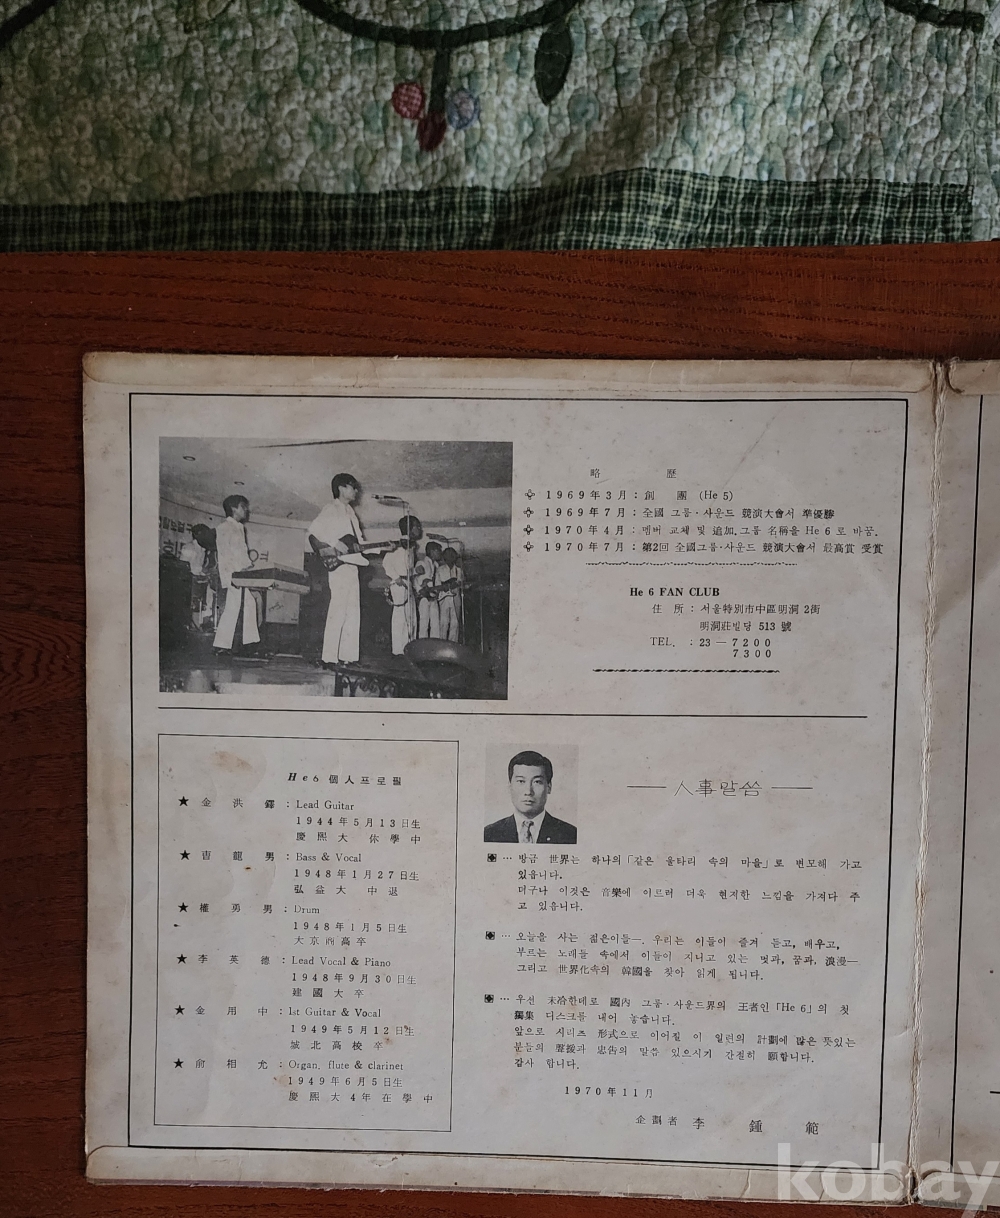 略 歷
1969年3月 : 創 團 (He 5)
1969年7月 : 全國 그룹·사운드 競演大會서 準優勝
1970年4月 : 멤버 교체 및 追加. 그룹 名稱을 He 6 로 바꿈.
1970年7月 : 第2回 全國그룹·사운드 競演大會서 最高賞 受賞
He 6 FAN CLUB
住 所 : 서울特別市中區明洞 2街
明洞莊빌딩 513 號
TEL. : 23 — 7200
7300
He 6 個人프로필
★ 金 洪 鐸 : Lead Guitar
1944年5月13日生
慶熙大 休學中
★ 吉 龍 男 : Bass & Vocal
1948年1月27日生
弘益大 中退
★ 權 勇 男 : Drum
1948年1月5日生
大京商高卒
★ 李 英 德 : Lead Vocal & Piano
1948年9月30日生
建國大卒
★ 金 用 中 : 1st Guitar & Vocal
1949年5月12日生
城北高校卒
★ 兪 相 允 : Organ, flute & clarinet
1949年6月5日生
慶熙大4年在學中
— 人事말씀 —
… 방금 世界는 하나의 「같은 울타리 속의 마을」로 변모해 가고
있읍니다.
더구나 이것은 音樂에 이르러 더욱 현저한 느낌을 가져다 주
고 있읍니다.
… 오늘을 사는 젊은이들—. 우리는 이들이 즐겨 듣고, 배우고,
부르는 노래들 속에서 이들이 지니고 있는 멋과, 꿈과, 浪漫—
그리고 世界化속의 韓國을 찾아 읽게 됩니다.
… 우선 未洽한데로 國內 그룹·사운드界의 王者인 「He 6」의 첫
獨集 디스크를 내어 놓습니다.
앞으로 시리즈 形式으로 이어질 이 일련의 計劃에 많은 뜻있는
분들의 聲援과 忠告의 말씀 있으시기 간절히 願합니다.
감사 합니다.
1970年11月
企劃者 李 鍾 範
kobay